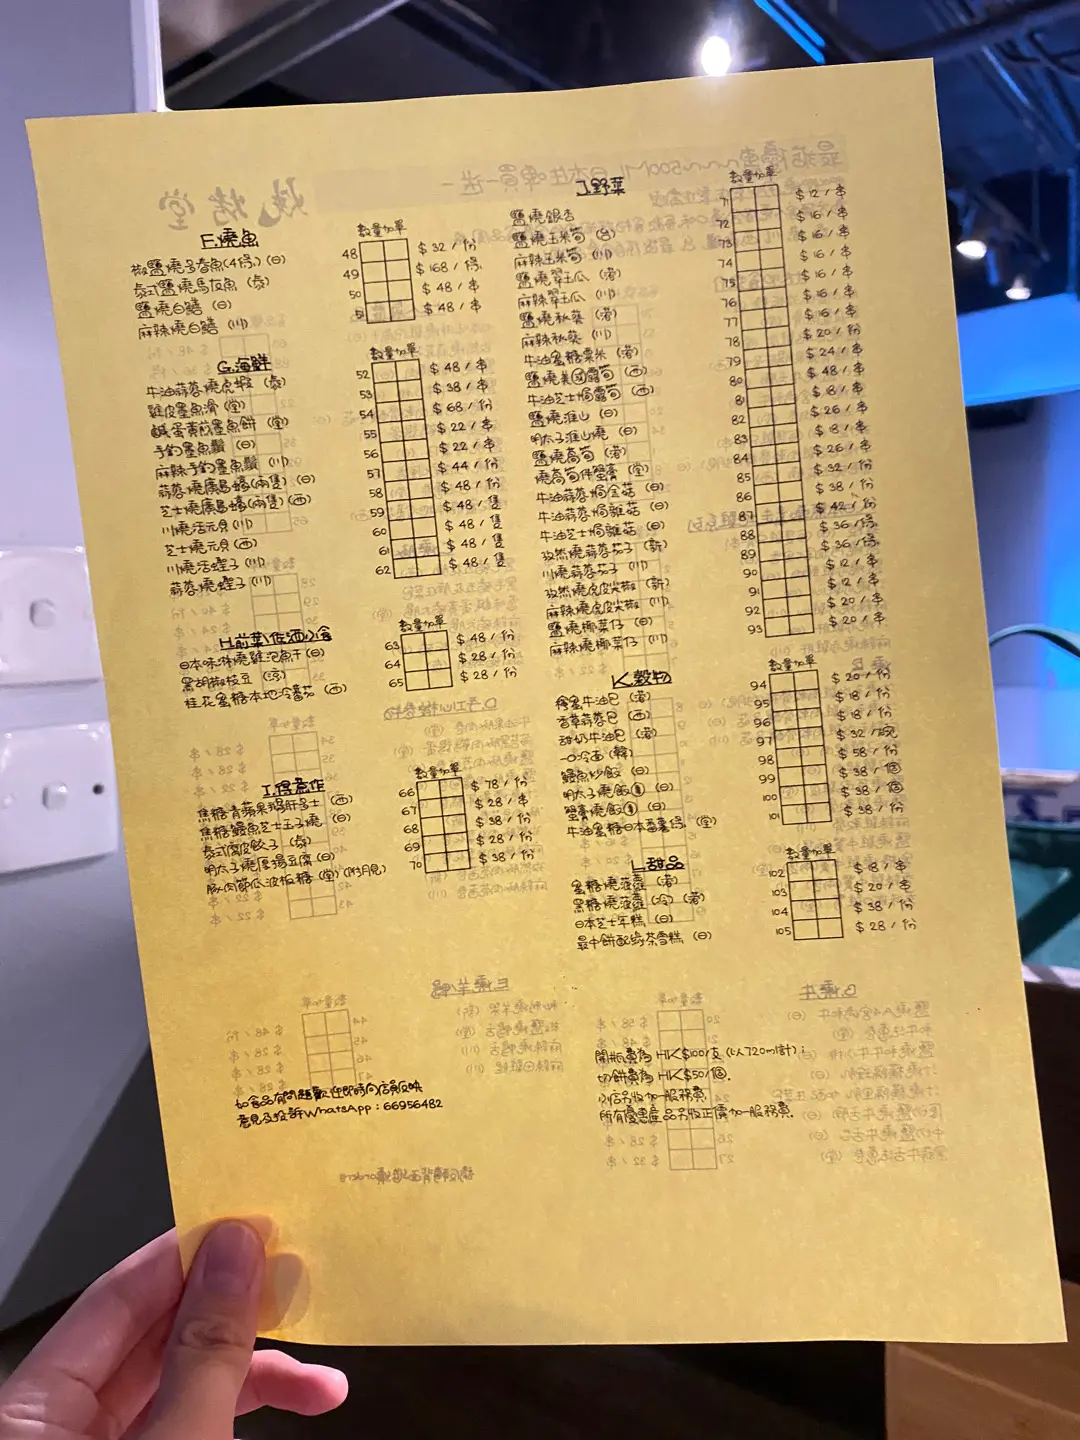 F.燒魚
數量加單
椒鹽燒多春魚(4條)(日) 48 $32/份
泰式鹽燒馬友魚(泰) 49 $168/條
鹽燒白鱔(日) 50 $48/串
麻辣燒白鱔(川) 51 $48/串
G.海鮮
數量加單
牛油蒜蓉燒虎蝦(泰) 52 $48/串
雞皮墨魚滑(堂) 53 $38/串
鹹蛋黃煎墨魚餅(堂) 54 $68/份
手釣墨魚鬚(日) 55 $22/串
麻辣手釣墨魚鬚(川) 56 $22/串
蒜蓉燒廣島蠔(兩隻)(日) 57 $44/份
芝士燒廣島蠔(兩隻)(西) 58 $48/份
川燒活元貝(川) 59 $48/隻
芝士燒元貝(西) 60 $48/隻
川燒活蟶子(川) 61 $48/隻
蒜蓉燒蟶子(川) 62 $48/隻
H.前菜\佐酒小食
數量加單
日本味淋燒雞泡魚干(日) 63 $48/份
黑胡椒枝豆(涼) 64 $28/份
桂花蜜糖本地冷番茄(西) 65 $28/份
I.得意作
數量加單
焦糖青蘋果鵝肝多士(西) 66 $78/份
焦糖鰻魚芝士玉子燒(日) 67 $28/串
泰式腐皮餃子(泰) 68 $38/份
明太子燒厚揚豆腐(日) 69 $28/份
豚肉節瓜波板糖(堂)(附月見) 70 $38/份
如食品有問題歡迎即時向店員反映
意見及投訴WhatsApp:66956482
J.野菜
數量加單
鹽燒銀杏 71 $12/串
鹽燒玉米筍(台) 72 $16/串
麻辣玉米筍(川) 73 $16/串
鹽燒翠玉瓜(港) 74 $16/串
麻辣翠玉瓜(川) 75 $16/串
鹽燒秋葵(港) 76 $16/串
麻辣秋葵(川) 77 $16/串
牛油蜜糖粟米(港) 78 $20/份
鹽燒美國露筍(西) 79 $24/串
牛油芝士焗露筍(西) 80 $48/串
鹽燒淮山(日) 81 $18/串
明太子淮山燒(日) 82 $26/串
鹽燒萵筍(港) 83 $18/串
燒萵筍伴蟹膏(堂) 84 $26/串
牛油蒜蓉焗金菇(日) 85 $32/份
牛油蒜蓉焗雜菇(日) 86 $38/份
牛油芝士焗雜菇(日) 87 $42/份
孜然燒蒜蓉茄子(新) 88 $36/條
川燒蒜蓉茄子(川) 89 $36/條
孜然燒虎皮尖椒(新) 90 $12/串
麻辣燒虎皮尖椒(川) 91 $12/串
鹽燒椰菜仔(日) 92 $20/串
麻辣燒椰菜仔(川) 93 $20/串
K.穀物
數量加單
檸蜜牛油包(港) 94 $20/份
香草蒜蓉包(西) 95 $18/份
甜奶牛油包(港) 96 $18/份
一口冷面(韓) 97 $32/碗
鰻魚炒飯(日) 98 $58/份
明太子燒飯團(日) 99 $38/個
蟹膏燒飯團(日) 100 $38/個
牛油蜜糖日本蕃薯條(堂) 101 $38/份
L.甜品
數量加單
蜜糖燒菠蘿(港) 102 $18/串
黑糖燒菠蘿(冷)(港) 103 $20/串
日本芝士年糕(日) 104 $38/份
最中餅配綠茶雪糕(日) 105 $28/份
開瓶費為HK$100/支(以720ml計);
切餅費為HK$50/個.
小店另收加一服務費.
所有優惠產品另收正價加一服務費.